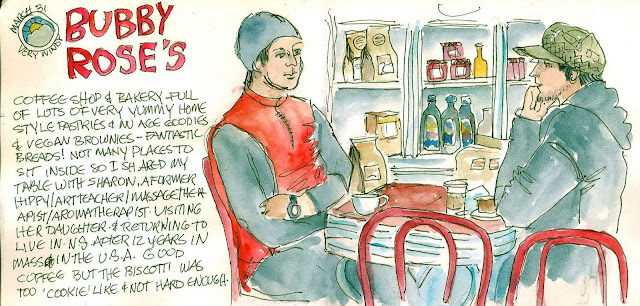 MARCH 31
VERY WINDY
BUBBY
ROSE'S
COFFEE SHOP & BAKERY FULL
OF LOTS OF VERY YUMMY HOME
STYLE PASTRIES & NU AGE GOODIES
& VEGAN BROWNIES - FANTASTIC
BREADS! NOT MANY PLACES TO
SIT INSIDE SO I SHARED MY
TABLE WITH SHARON, A FORMER
HIPPY/ART TEACHER/MASSAGE THER-
APIST/AROMATHERAPIST VISITING
HER DAUGHTER & RETURNING TO
LIVE IN N.S. AFTER 12 YEARS IN
MASS IN THE U.S.A. GOOD
COFFEE BUT THE BISCOTTI WAS
TOO 'COOKIE' LIKE & NOT HARD ENOUGH.